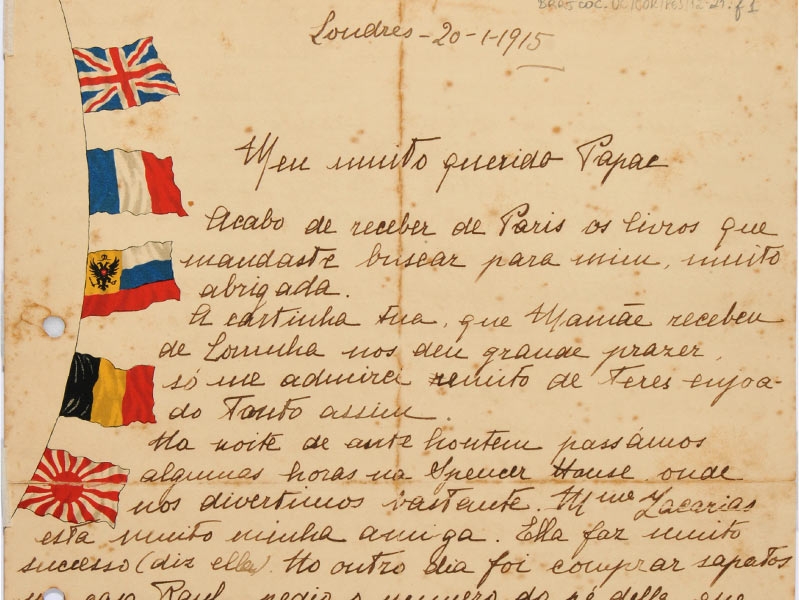 Londres - 20-1-1915
Meu muito querido Papae
Acabo de receber de Paris os livros que
mandaste buscar para mim, muito
abrigada.
A cartinha tua, que Mamãe recebeu
de nos deu grande prazer,
só me admirei muito de teres enjoa-
do tanto assim.
Na noite de ante hontem passámos
algumas horas na Spencer House onde
nos divertimos bastante. Mme Zacarias
está muito minha amiga. Ella faz muito
successo (diz ella). No outro dia foi comprar sapatos
casa Raul, pedio o numero do pé della, que